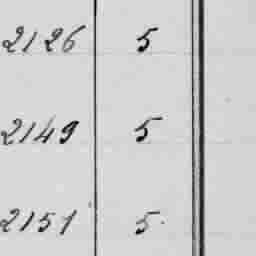 2126 5
2149 5
2151 5